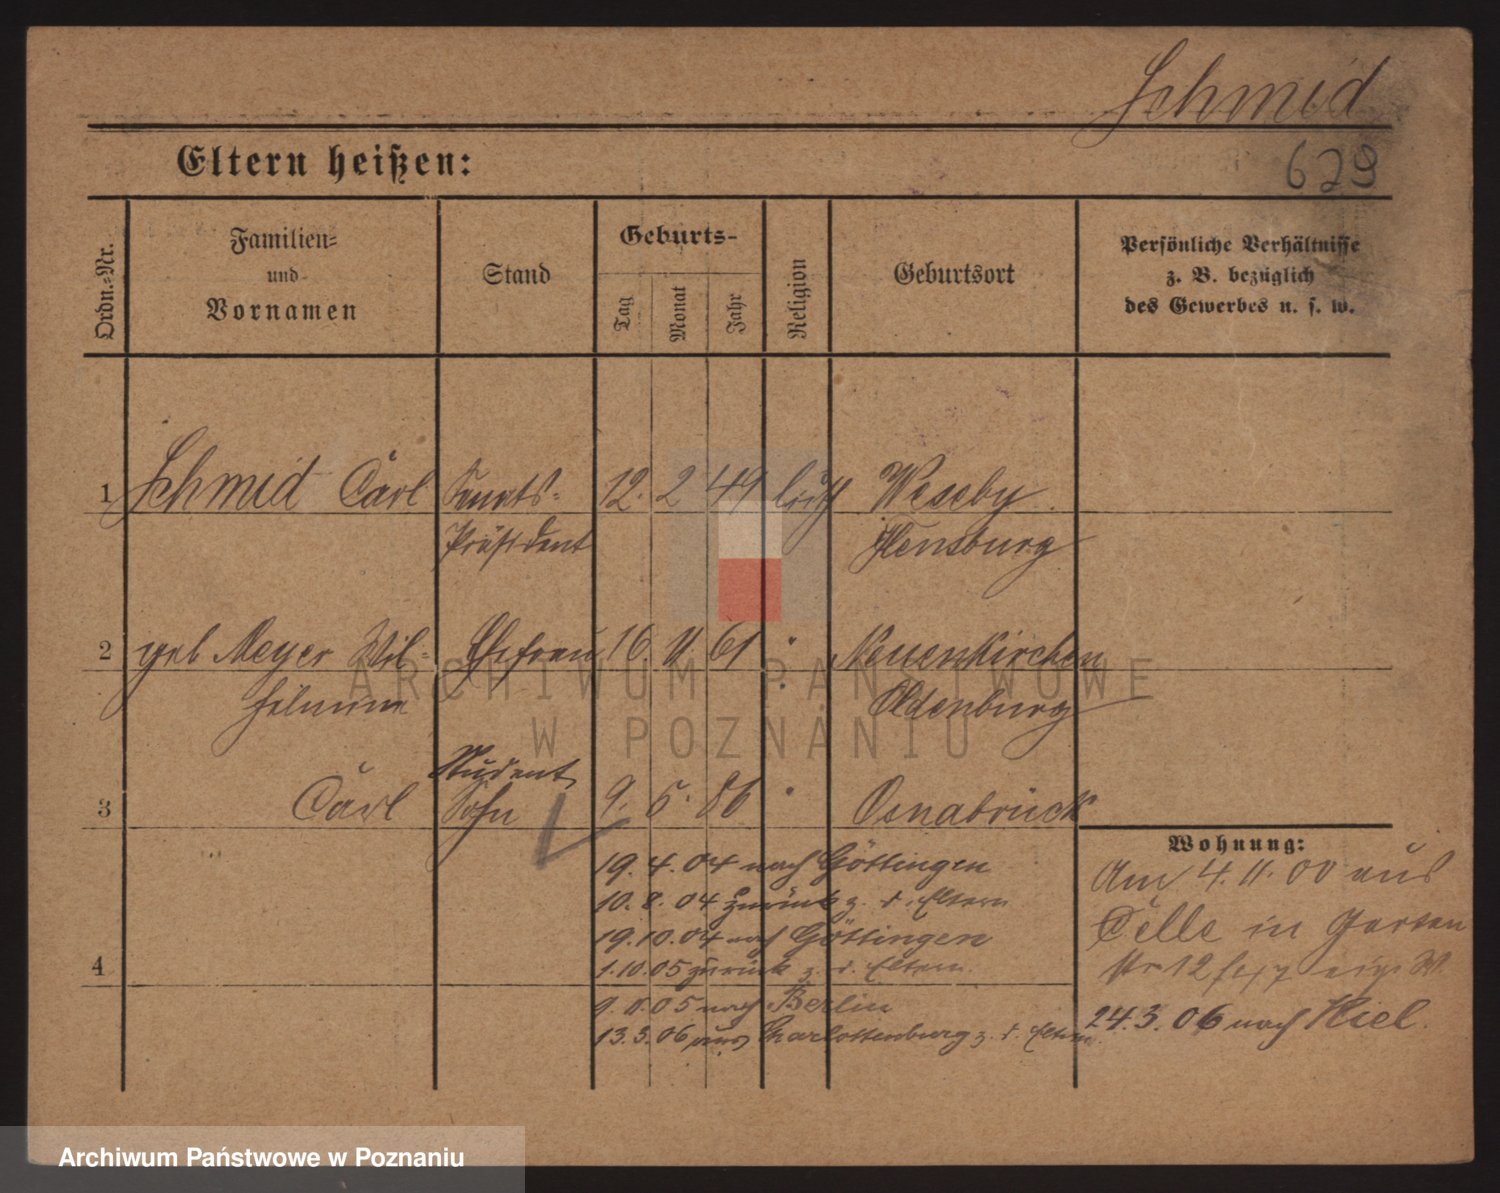 Schmid
Eltern heißen:
629
Ordn.=Nr.
Familien=
und
Vornamen
Stand
Geburts-
Tag
Monat
Jahr
Religion
Geburtsort
Persönliche Verhältnisse
z. B. bezüglich
des Gewerbes u. s. w.
1 Schmid Carl Senats= 12. 2 49 luth Weseby
Präsident Flensburg
2 geb Meyer Wil= Ehefrau 16 11 61 " Neuenkirchen
helmine Oldenburg
Student
3 Carl Sohn 9. 5. 86 " Osnabrück
Wohnung:
19. 4. 04 nach Göttingen
10. 8. 04 zurück z. d. Eltern
19. 10. 04 nach Göttingen
4
1. 10. 05 zurück z. d. Eltern
9. 11. 05 nach Berlin
13. 3. 06 aus Charlottenburg z. d. Eltern
Am 4. 11. 00 aus
Celle in Garten
str 12
24. 3. 06 nach Kiel.
ARCHIWUM PAŃSTWOWE
W POZNANIU
Archiwum Państwowe w Poznaniu